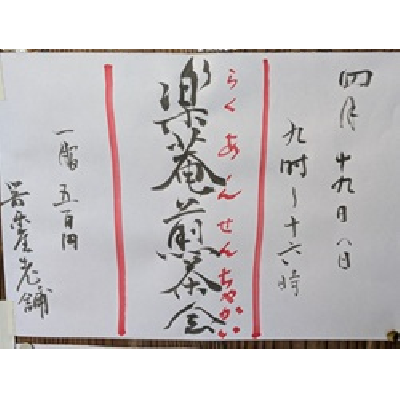 四月十九日(日)
九時〜十六時
らくあんせんちゃかい
楽菴煎茶会
一服五百円
老舗